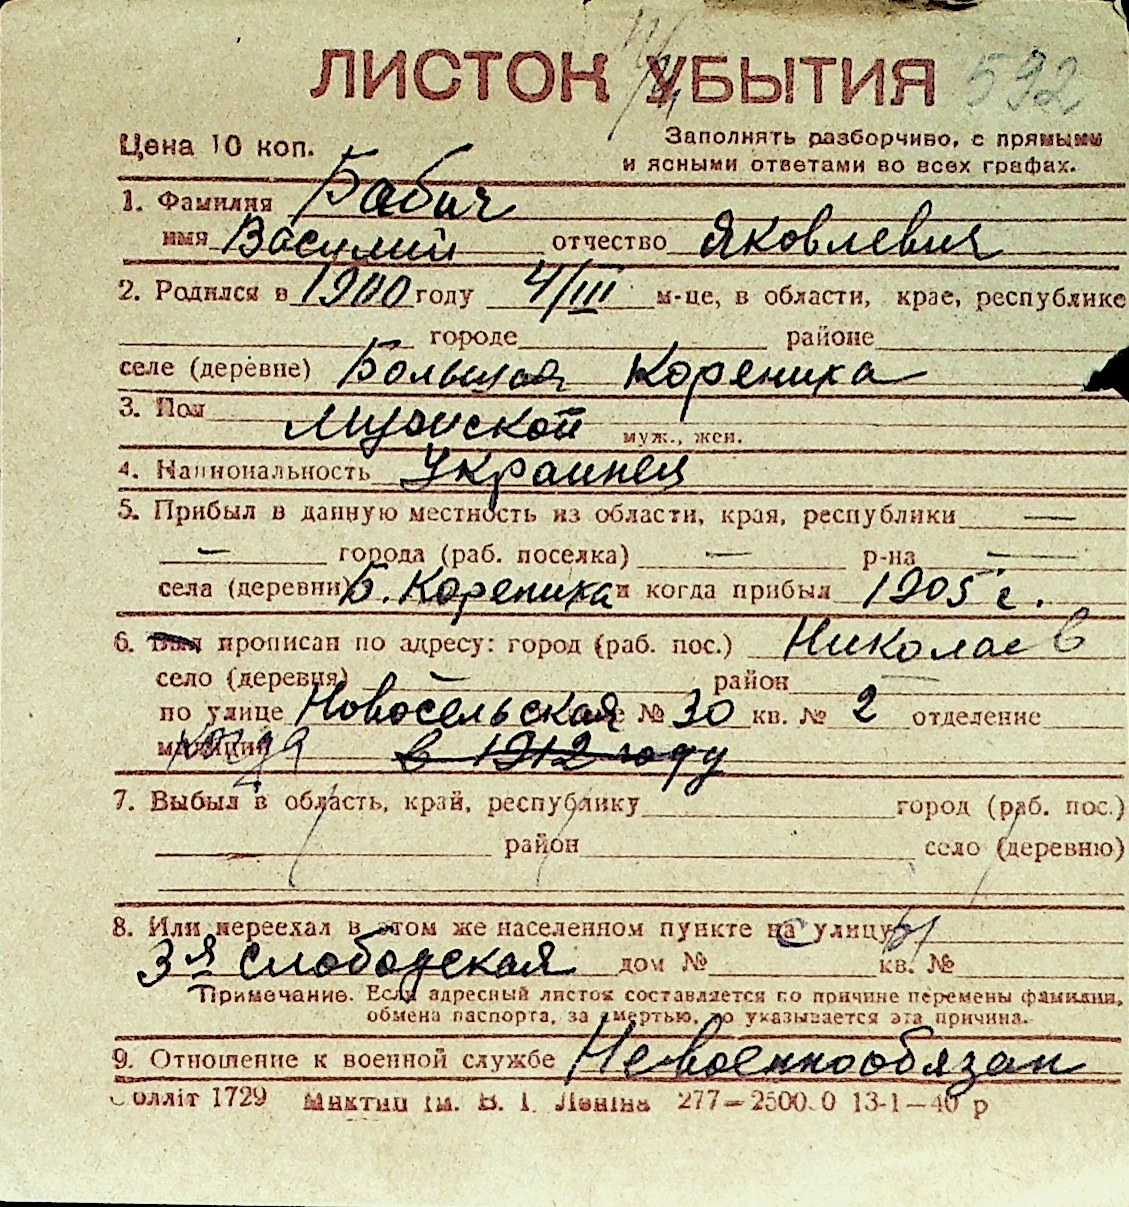 ЛИСТОК УБЫТИЯ 592
Цена 10 коп.
Заполнять разборчиво, с прямыми
и ясными ответами во всех графах.
1. Фамилия Бабич
имя Василий отчество Яковлевич
2. Родился в 1900 году 4/III м-це, в области, крае, республике
городе районе
селе (деревне) Большая Корениха
3. Пол Мужской муж., жен.
4. Национальность Украинец
5. Прибыл в данную местность из области, края, республики —
— города (раб. поселка) — р-на —
села (деревни) Б. Корениха и когда прибыл 1905 г.
6. прописан по адресу: город (раб. пос.) Николаев
село (деревня) — район —
по улице Новосельская № 30 кв. № 2 отделение
милиции когда в 1912 году
7. Выбыл в область, край, республику город (раб. пос.)
район село (деревню)
8. Или переехал в этом же населенном пункте с улицы
3я Слободская дом № кв. №
Примечание. Если адресный листок составляется по причине перемены фамилии,
обмена паспорта, за смертью, то указывается эта причина.
9. Отношение к военной службе Невоеннообязан
Облліт 1729 Миктип ім. В. І. Леніна 277—2500.0 13-1—40 р